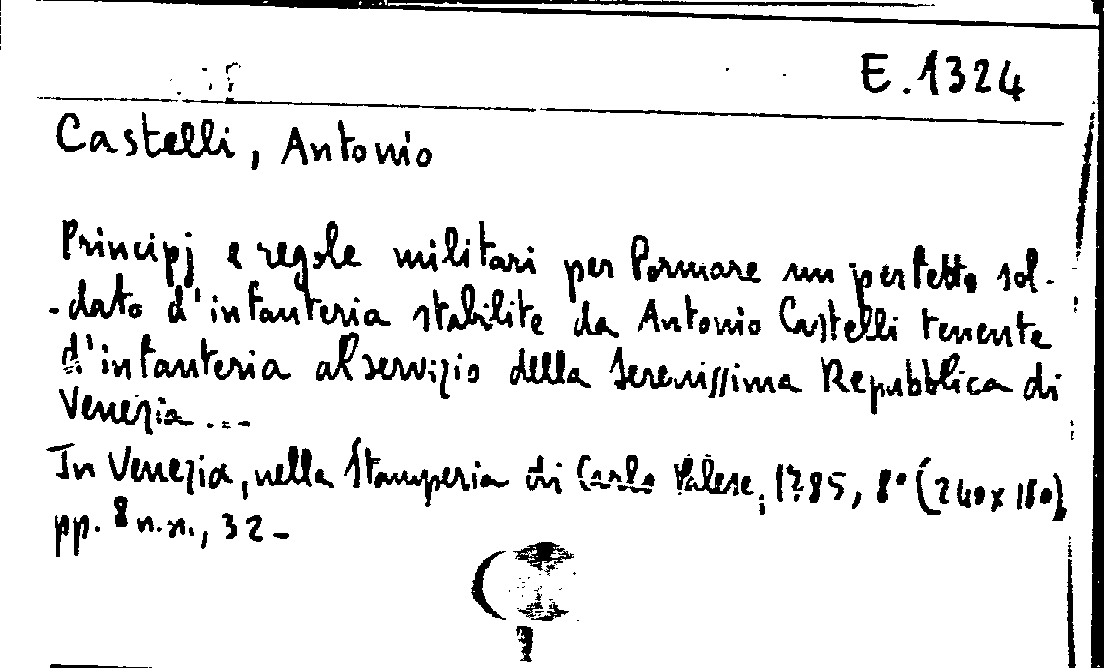 E.1324
Castelli, Antonio
Principj e regole militari per formare un perfetto sol-
-dato d'infanteria stabilite da Antonio Castelli tenente
d'infanteria al servizio della Serenissima Repubblica di
Venezia ...
In Venezia, nella Stamperia di Carlo Palese, 1785, 8° (240x180)
pp. 8 n.n., 32-